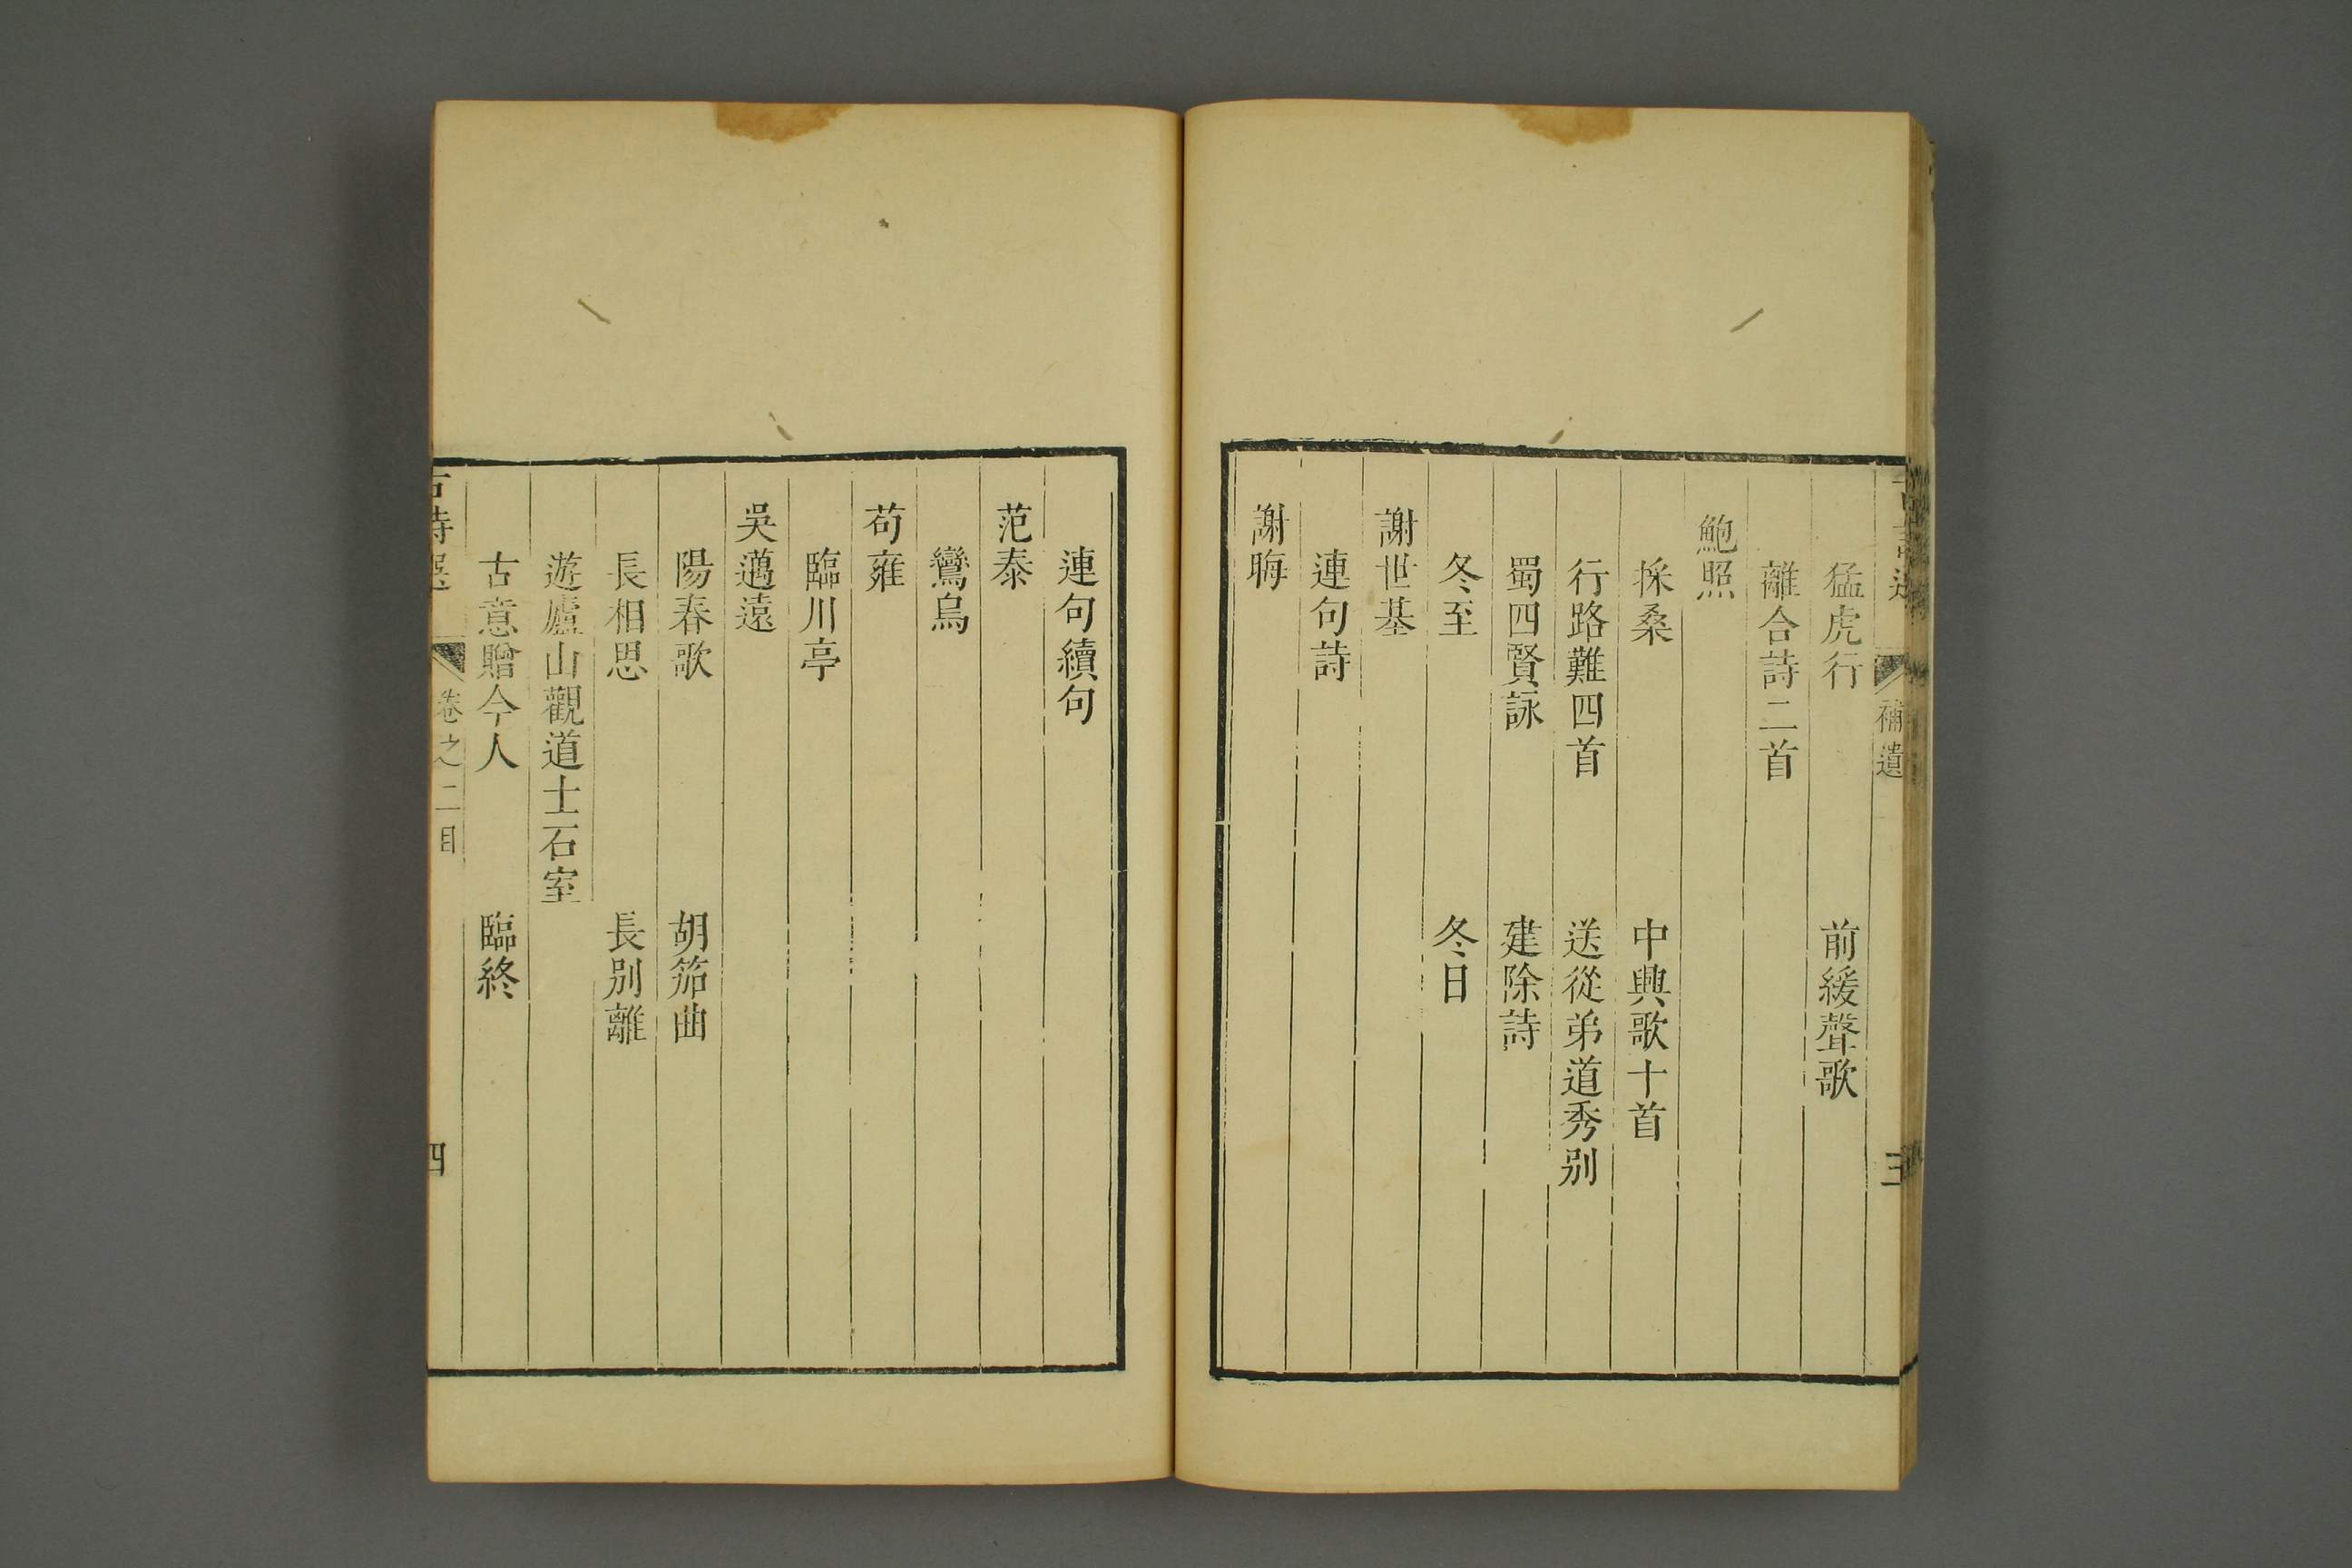 補遺
猛虎行 前緩聲歌
離合詩二首
鮑照
採桑 中興歌十首
行路難四首 送從弟道秀别
蜀四賢詠 建除詩
冬至 冬日
謝世基
連句詩
謝晦
連句續句
范泰
鸞鳥
苟雍
臨川亭
吳邁遠
陽春歌 胡笳曲
長相思 長别離
遊廬山觀道士石室
古意贈今人 臨終
古詩選 卷之二目 四